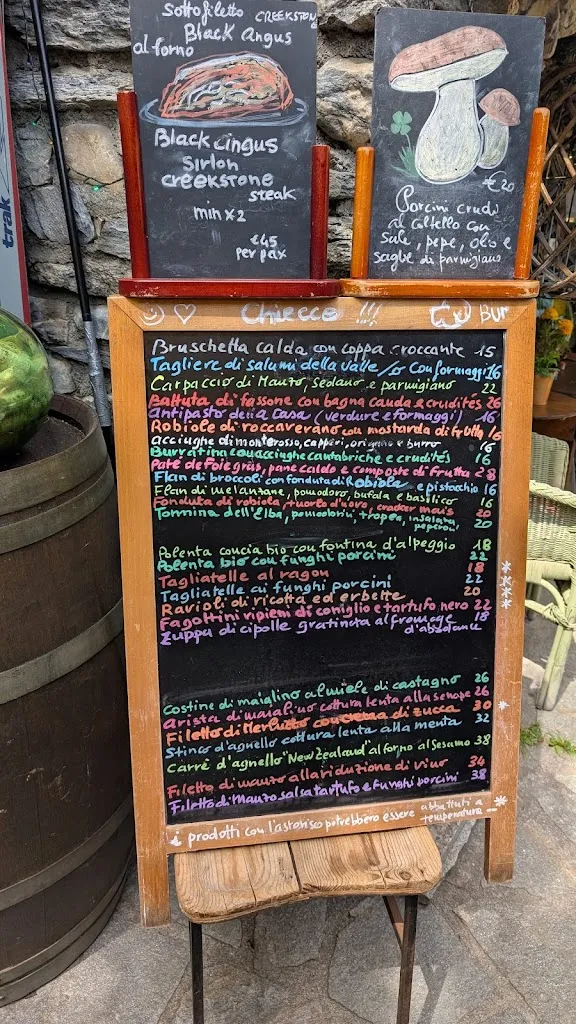 trak
Sottofiletto CREEKSTONE
Black Angus
al forno
Black Angus
Sirlon
CREEKSTONE
steak
min x 2
€45
per pax
€20
Porcini crudi
al coltello con
sale, pepe, olio e
scaglie di parmigiano
Checco !!!
Bur
Bruschetta calda con coppa croccante 15
Tagliere di salumi della valle /o con formaggi 16
Carpaccio di Manzo, sedano e parmigiano 22
Battuta di fassone con bagna cauda e crudités 26
Antipasto della Casa (verdure e formaggi) 16
Robiole di roccaverano con mostarda di frutta 16
acciughe di monterosso, capperi, origano e burro 16
Burratina con acciughe cantabriche e crudités 16
Paté de foie gras, pane caldo e composte di frutta 28
Flan di broccoli con fonduta di Robiola e pistacchio 16
Flan di melanzane, pomodoro, bufala e basilico 16
Fonduta di robiola, tuorlo d'uovo, cracker mais 20
Tonnina dell'Elba, pomodorini, tropea, insalata, peperoni 20
Polenta concia bio con fontina d'alpeggio 18
Polenta bio con funghi porcini 22
Tagliatelle al ragou 18
Tagliatelle ai funghi porcini 22
Ravioli di ricotta ed erbette 20
Fagottini ripieni di coniglio e tartufo nero 22
Zuppa di cipolle gratinata al fromage d'abondance 18
Costine di maialino al miele di castagno 26
Arista di maialino cottura lenta alla senape 26
Filetto di Merluzzo con crema di zucca 30
Stinco d'agnello cottura lenta alla menta 32
Carrè d'agnello "New Zealand" al forno al Sesamo 38
Filetto di manzo alla riduzione di vino 34
Filetto di Manzo salsa tartufo e funghi porcini 38
i prodotti con l'asterisco potrebbero essere abbattuti a temperatura *